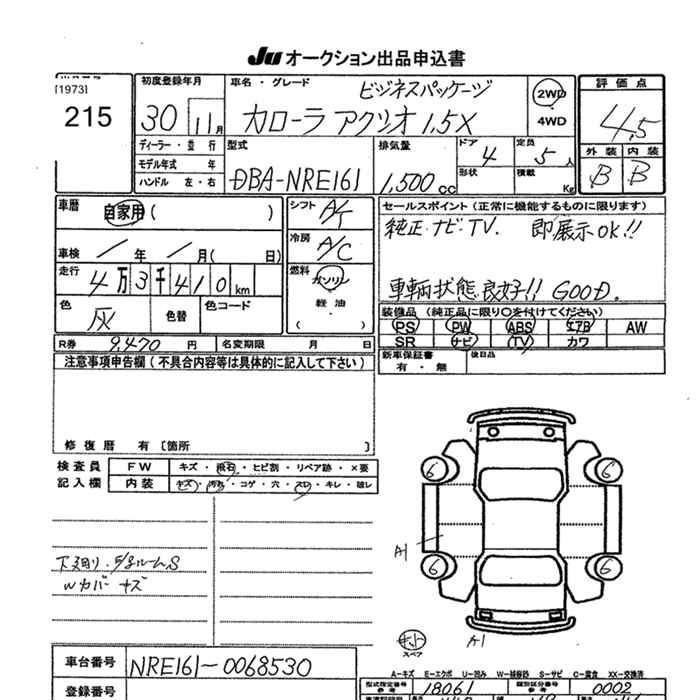 JU オークション出品申込書
[1973]
215
初度登録年月
30 11月
車名・グレード
ビジネスパッケージ
カローラ アクシオ 1.5X
2WD
4WD
評価点
4.5
外装 内装
B B
ディーラー・並 行
モデル年式 年
ハンドル 左・右
型式
DBA-NRE161
排気量
1,500cc
ドア
4
形状
定員
5人
積載
Kg
車歴
自家用( )
車検 / 年 / 月( 日)
走行
4万3千410km
色
灰
色替
色コード
シフト
A/T
冷房
A/C
燃料
ガソリン
軽油
( )
セールスポイント(正常に機能するものに限ります)
純正ナビTV. 即展示OK!!
車輌状態良好!! GOOD.
装備品(純正品に限り○を付けてください)
PS PW ABS エアB AW
SR ナビ TV カワ
R券 9,470円
名変期限 月 日
新車保証書
有・無
後日品
注意事項申告欄(不具合内容等は具体的に記入して下さい)
修復歴 有〔箇所 〕
検査員
記入欄
FW キズ・飛石・ヒビ割・リペア跡・×要
内装 キズ・汚れ・コゲ・穴・スレ・キレ・破レ
Wカバーキズ
6 6
A1
6 6
A1
スペア
車台番号 NRE161-0068530
登録番号
A-キズ E-エクボ U-凹み W-補修跡 S-サビ C-腐食 XX-交換済
型式指定番号 18061
類別区分番号 0002